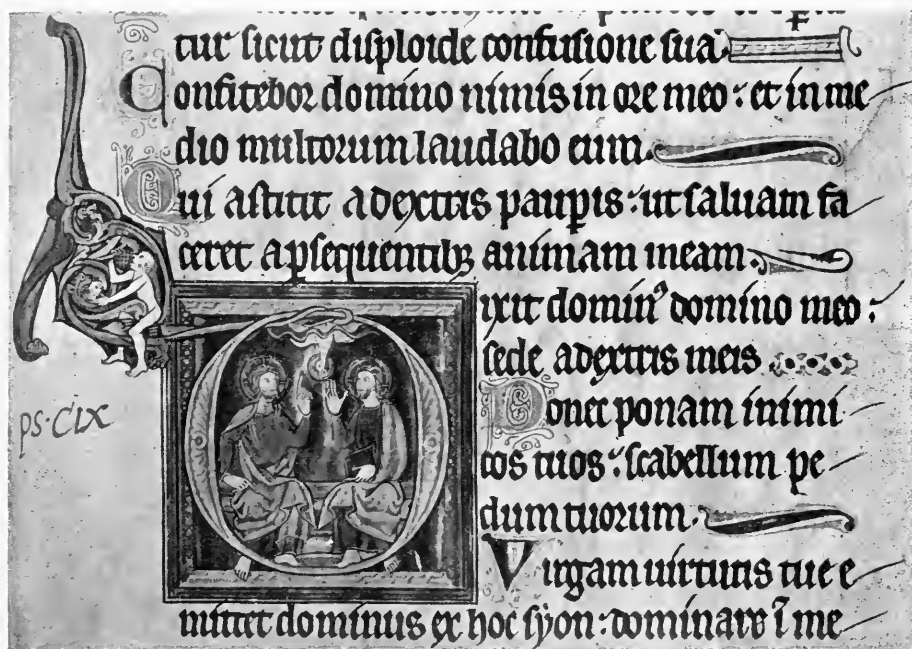 tur sicut disploide confusione sua.
Confitebor domino nimis in ore meo: et in me
dio multorum laudabo eum.
Qui astitit adextris paupis: ut saluam fa
ceret apsequentibꝫ animam meam.
ixit dominꝰ domino meo:
sede adextris meis
Donec ponam inimi
cos tuos: scabellum pe
dum tuorum.
Virgam uirtutis tue e
mittet dominus ex hoc syon: dominare ī me
ps. CIX